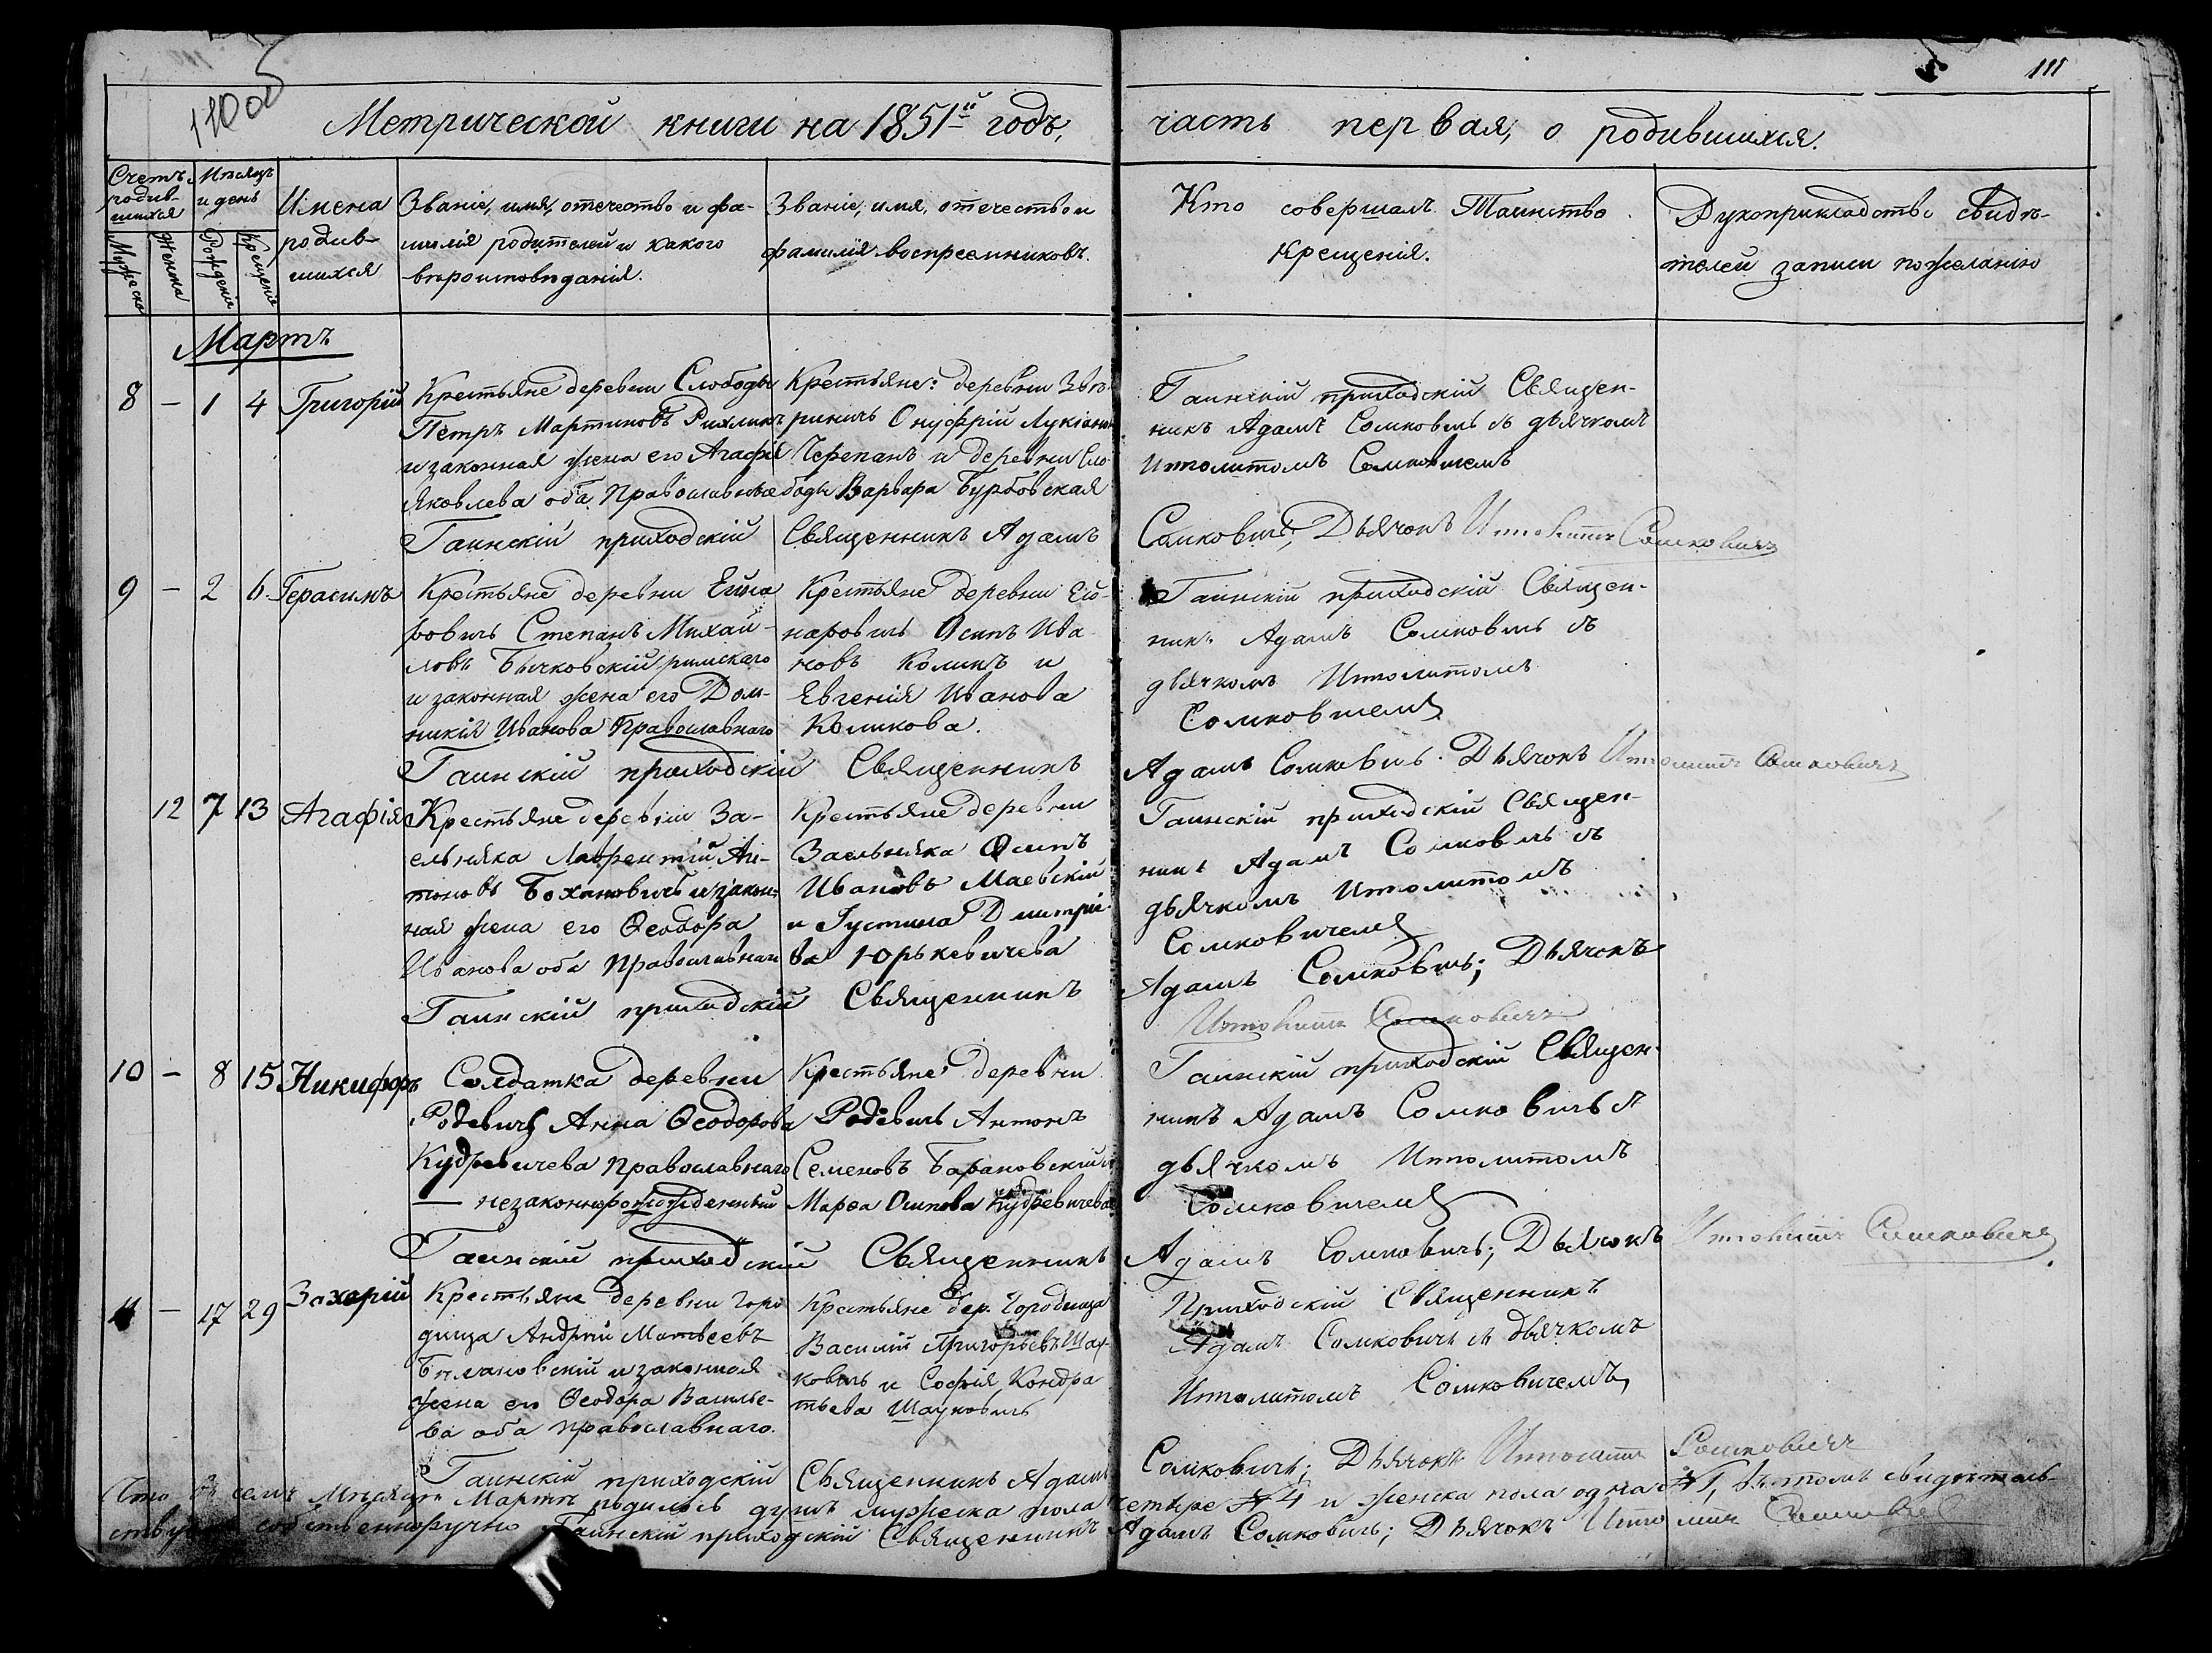 110 об
111
Метрической книги на 1851й годъ, часть первая, о родившихся.
Счетъ родив-шихся
Мужеска
Женска
Мѣсяцъ и день
Рожденія
Крещенія
Имена
родив-
шихся
Званіе, имя, отечество и фа-
милія родителей и какого
вѣроисповѣданія.
Званіе, имя, отечество и
фамилія воспреемниковъ.
Кто совершалъ Таинство
Крещенія.
Рукоприкладство свидѣ-
телей записи по желанію
Мартъ
8 — 1 4 Григорій
Крестьяне деревни Слободы
Петръ Мартиновъ
и законная жена его Агафія
Яковлева оба Православные
Крестьяне: деревни Звѣ-
риничь Онуфрій Лукіановъ
Черепанъ и деревни Сло-
боды Варвара Бурбовская
Гаинскій приходскій Священ-
никъ Адамъ Сомковичь съ дьячкомъ
Ипполитомъ Сомковичемъ
Гаинскій приходскій Священникъ Адамъ Сомковичь; Дьячокъ Ипполитъ Сомковичъ
9 — 2 6 Герасимъ
Крестьяне деревни Ейна-
ровичь Степанъ Михай-
ловъ Бычковскій римскаго
и законная жена его Дом-
никія Иванова Православнаго
Крестьяне деревни Ей-
наровичь Осипъ Ива-
новъ Коликъ и
Евгенія Иванова
Коликова.
Гаинскій приходскій Священ-
никъ Адамъ Сомковичь съ
дьячкомъ Ипполитомъ
Сомковичемъ
Гаинскій приходскій Священникъ Адамъ Сомковичь. Дьячокъ Ипполитъ Сомковичъ
12 7 13 Агафія
Крестьяне деревни За-
ельняка Лаврентій Ан-
тоновъ Бохановичь и закон-
ная жена его Ѳеодора
Иванова оба Православнаго
Крестьяне деревни
Заельняка Осипъ
Ивановъ Маевскій
и Густина Дмитріе-
ва Юрькевичева
Гаинскій приходскій Священ-
никъ Адамъ Сомковичь съ
дьячкомъ Ипполитомъ
Сомковичемъ
Гаинскій приходскій Священникъ Адамъ Сомковичь; Дьячокъ
Ипполитъ Сомковичъ
10 — 8 15 Никифоръ
Солдатка деревни
Родевичь Анна Ѳеодорова
Кудревичева Православнаго
— незаконнорожденный
Крестьяне деревни
Родевичь Антонъ
Семеновъ Барановскій и
Марѳа Осипова Кудревичева
Гаинскій приходскій Священ-
никъ Адамъ Сомковичь съ
дьячкомъ Ипполитомъ
Сомковичемъ
Гаинскій приходскій Священникъ Адамъ Сомковичь; Дьячокъ Ипполитъ Сомковичъ
11 — 17 29 Захарій
Крестьяне деревни Горо-
дища Андрей Матвеевъ
и законная
жена его Ѳеодора Василье-
ва оба православнаго.
Крестьяне дер. Городища
Василій Григорьевъ
и Софія Кондра-
тьева
Приходскій Священникъ
Адамъ Сомковичь съ дьячкомъ
Ипполитомъ Сомковичемъ
Гаинскій приходскій Священникъ Адамъ Сомковичь; Дьячокъ Ипполитъ Сомковичъ
Что въ семъ Мѣсяцѣ Мартѣ родилось душъ мужеска пола четыре № 4 и женска пола одна № 1, въ томъ свидѣтель-
ствуемъ собственноручно Гаинскій приходскій Священникъ Адамъ Сомковичь; Дьячокъ Ипполитъ Сомковичъ